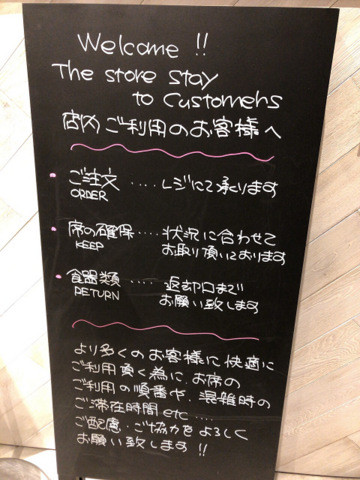 Welcome !!
The store stay
to Customers
店内ご利用のお客様へ
ご注文 ‥‥ レジにて承ります
ORDER
席の確保 ‥‥ 状況に合わせて
KEEP お取り頂いております
食器類 ‥‥ 返却口まで
RETURN お願い致します
より多くのお客様に快適に
ご利用頂く為に、お席の
ご利用の順番や、混雑時の
ご滞在時間etc ‥‥
ご配慮・ご協力をよろしく
お願い致します !!